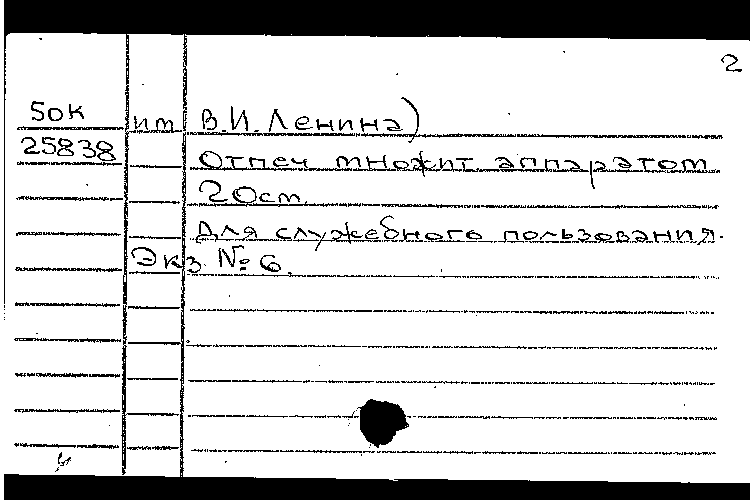 2
50к им. В.И. Ленина)
25838 Отпеч множит аппаратом
20 ст.
Для служебного пользования.
Экз. № 6.